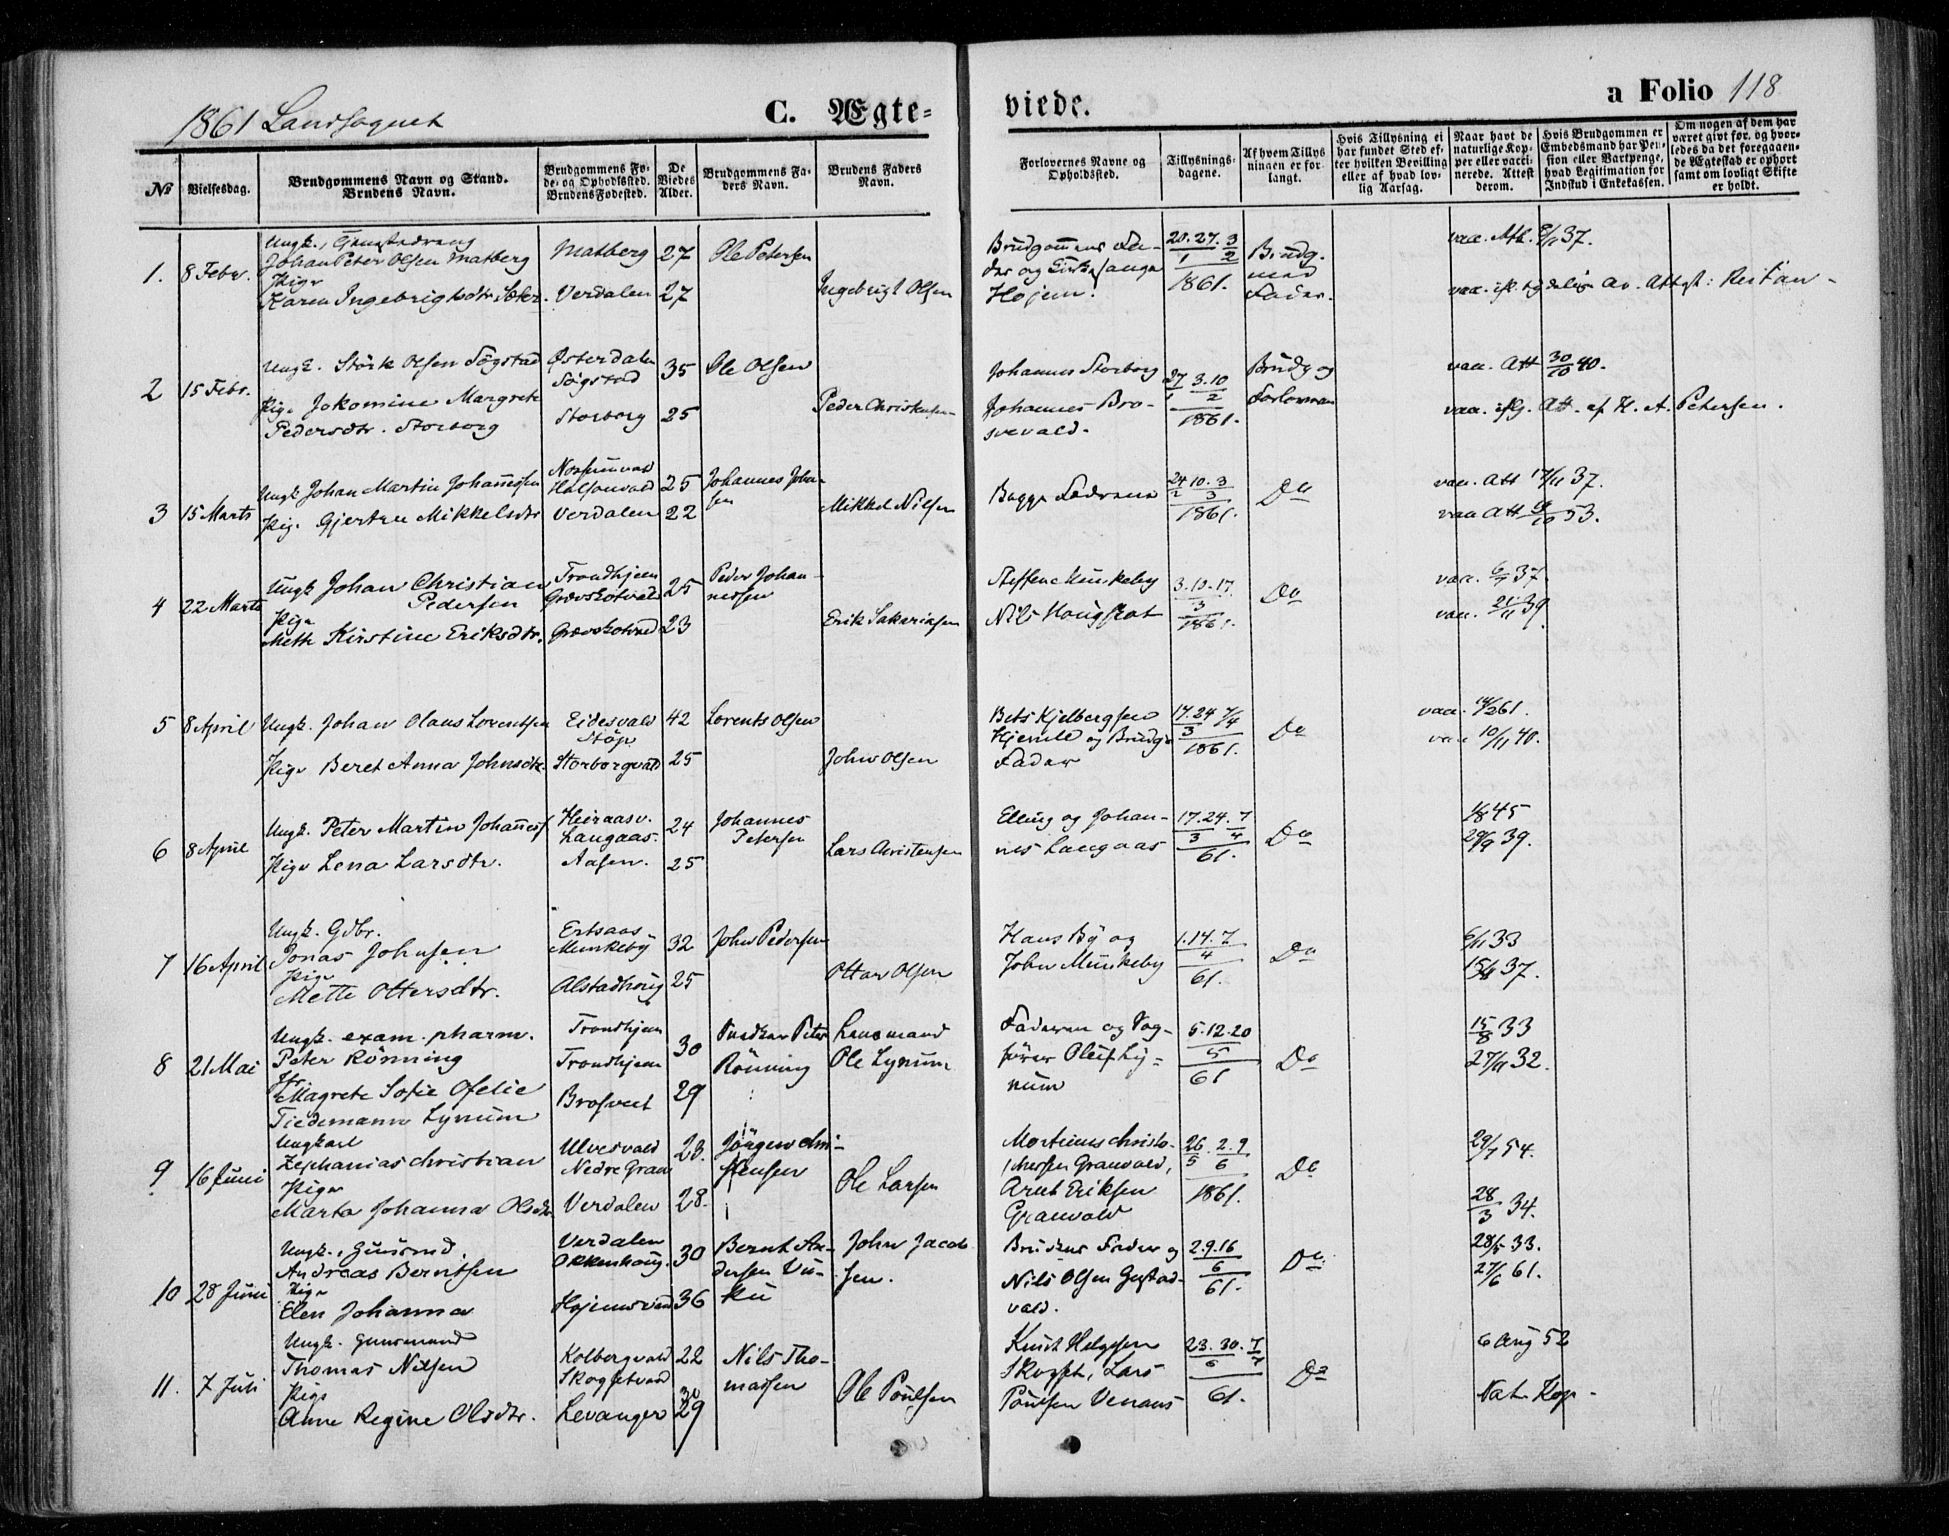 1861 Landsognet
C. Ægte-
viede.
a Folio 118
No
Vielsesdag.
Brudgommens Navn og Stand.
Brudens Navn.
Brudgommens Fø-
de- og Opholdssted.
Brudens Fødested.
De
Viedes
Alder.
Brudgommens Fa-
ders Navn.
Brudens Faders
Navn.
Forlovernes Navne og
Opholdssted.
Tillysnings-
dagene.
Af hvem Tillys
ningen er for-
langt.
Hvis Tillysning ei
har fundet Sted ef-
ter hvilken Bevilling
eller af hvad lov-
lig Aarsag.
Naar havt de
naturlige Kop-
per eller vacci-
nerede. Attest
derom.
Hvis Brudgommen er
Embedsmand har Pen-
sion eller Vartpenge,
hvad Legitimation for
Indskud i Enkekassen.
Om nogen af dem har
været gift før, og hvor-
ledes da det foregaaen-
de Ægteskab er ophørt
samt om lovligt Skifte
er holdt.
1. 8 Febr.
Ungk.,
Johan Peter Olsen Matberg
Pige
Karen Ingebrigtsdtr
Matberg
Verdalen
27
27
Ole Petersen
Ingebrigt Olsen
Brudgommens Fa-
der og Kirkesanger
Hojem.
20. 27. 3
1 2
1861.
Brudg.
med
Fader.
vac. 37.
vac.
2 15 Febr.
Ungk. Störk Olsen Sögstad
Pige Jokomine Margrete
Pedersdtr. Storborg
Østerdalen
Sögstad
Storborg
35
25
Ole Olsen
Peder Christensen
Johannes Storborg
Johannes Bro-
svevald.
27 3. 10
1 2
1861.
Brudg og
Forlovern
vac. Att 30/10 40.
vac. iflg. Att. af H. A. Petersen.
3 15 Marts
Ungk Johan Martin Johannesen
Pige Gjertru Mikkelsdtr
Verdalen
25
22
Johannes John-
sen
Mikkel Nilsen
Bagge
24 10. 3
2 3
1861.
Do
vac. Att 17/11 37.
vac Att 53.
4 22 Marts
Ungk Johan Christian
Pedersen
Pige
Mette Kirstine Eriksdtr.
Trondhjem
25
23
Peder Johan-
nessen
Erik Sakariasen
Steffen Munkeby
Nils Hougskot
3. 10. 17.
3
1861.
Do
vac. 37.
vac. 21/11 39.
5 8 April
Ungk. Johan Olaus Lorentsen
Pige Beret Anna Johnsdtr.
Eidesvald
Stöp
Storborgvald
42
25
Lorents Olsen
John Olsen
Bets Kjelbergsen
og Brudg.
Fader
17. 24 7/4
3
1861.
Do
vac. 61.
vac 10/11 40.
6 8 April
Ungk. Peter Martin Johannes
Pige Lena Larsdtr.
Heiraasv.
Langaas.
Aasen.
24
25
Johannes
Petersen
Lars Christensen
Elling og Johan-
nes Langaas
17. 24. 7
3 4
61.
Do
1/8 45
29/9 39.
7 16 April
Ungk. Gdbr.
Jonas Johnsen
Pige
Mette Ottersdtr.
Ertsaas
Munkeby
Alstadhoug
32
25
John Pedersen
Otter Olsen
Hans By og
John Munkeby
1. 14. 7
4
61.
Do
6/11 33
37.
8 21 Mai
Ungk. exam. pharm.
Peter Rönning
Magrete Sofie Ofelie
Tiedemann Lynum
Trondhjem
Trondhjem
30
29
Peter
Rönning
Lensmand
Ole Lynum
Faderen og Fog-
Oluf Ly-
num
5. 12. 20
5
61
Do
15/8 33
27/11 32.
9 16 Juni
Ungkarl
Zephanias Christian
Pige
Marta Johanna Olsdtr
Ulvesvald
Nedre Gran
Verdalen
23.
28.
Jörgen Chri-
stensen
Ole Larsen
Granvald,
Arnt Eriksen
Granvald
26. 2. 9
5 6
1861.
Do
29/7 54.
28/3 34.
10 28 Juni
Ungk., Huusmd.
Andreas Berntsen
Pige
Elen Johanna
Verdalen
Okkenhoug.
Hojemsvald
30
36
Bernt An-
dersen Vu-
ku
John Jacob-
sen.
Brudens Fader og
Nils Olsen
vald.
2. 9. 16
6
61.
Do.
28/5 33.
27/6 61.
11. 7 Juli
Ungk. Huusmand
Thomas Nilsen
Pige
Anne Regine Olsdtr.
Kolbergvald
Levanger
22
30
29
Nils Tho-
massen
Ole Poulsen
Knut Helgesen
Lars
Poulsen Venaas
23. 30. 7
6 7
61.
Do
6 Aug 52
Nat. Kop.